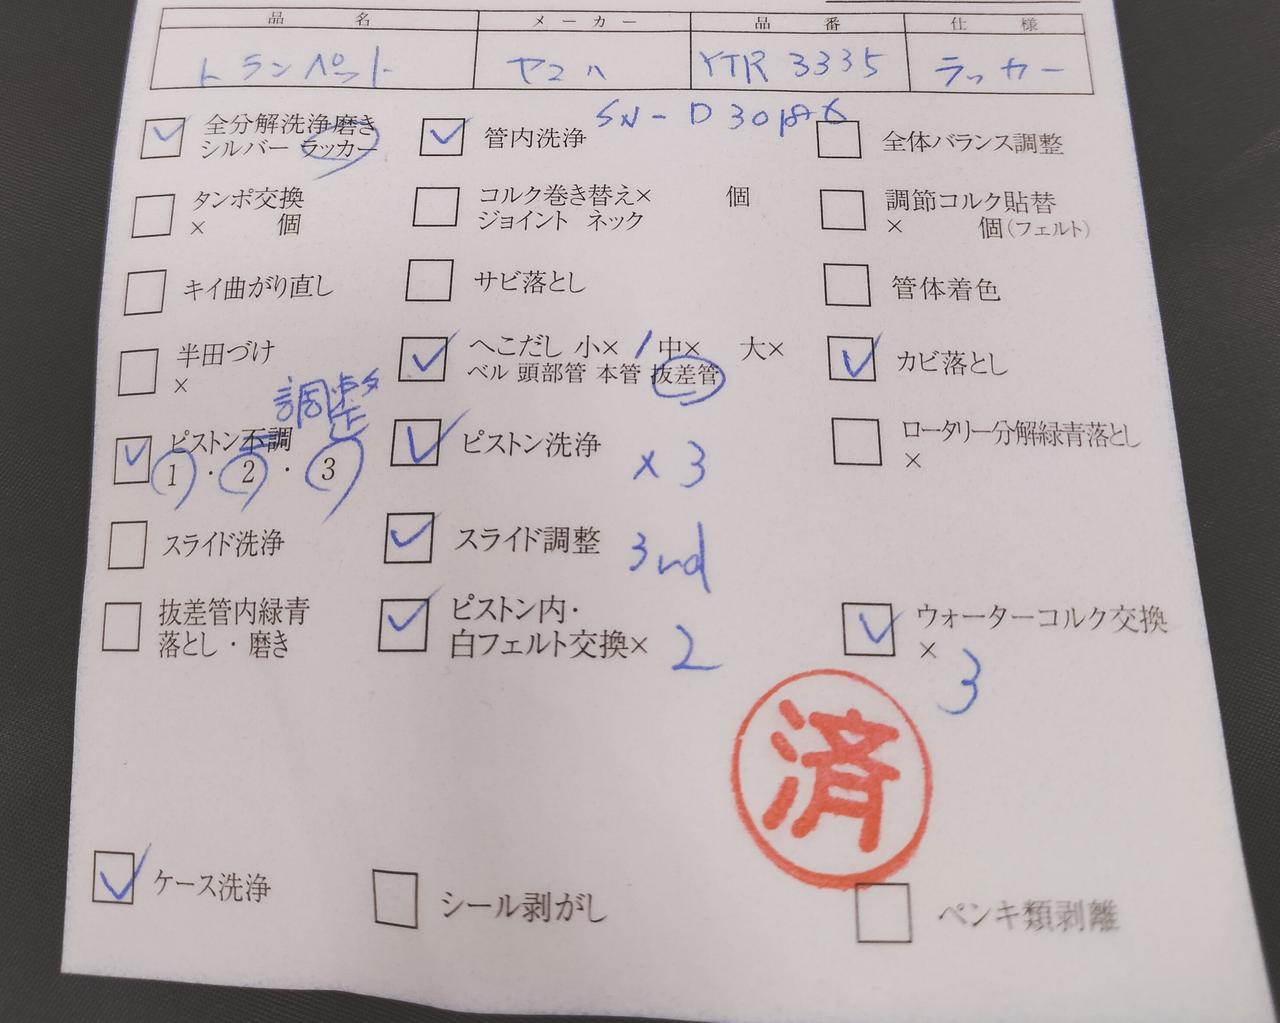 品名 メーカー 品番 仕様
トランペット ヤマハ YTR 3335 ラッカー
SN-
全分解洗浄磨き
シルバー ラッカー
管内洗浄
全体バランス調整
タンポ交換
× 個
コルク巻き替え× 個
ジョイント ネック
調節コルク貼替
× 個(フェルト)
キイ曲がり直し
サビ落とし
管体着色
半田づけ
×
へこだし 小× / 中× 大×
ベル 頭部管 本管 抜差管
カビ落とし
調整
ピストン不調
1・2・3
ピストン洗浄 ×3
ロータリー分解緑青落とし
×
スライド洗浄
スライド調整 3rd
抜差管内緑青
落とし・磨き
ピストン内・
白フェルト交換× 2
ウォーターコルク交換
× 3
済
ケース洗浄
シール剥がし
ペンキ類剥離